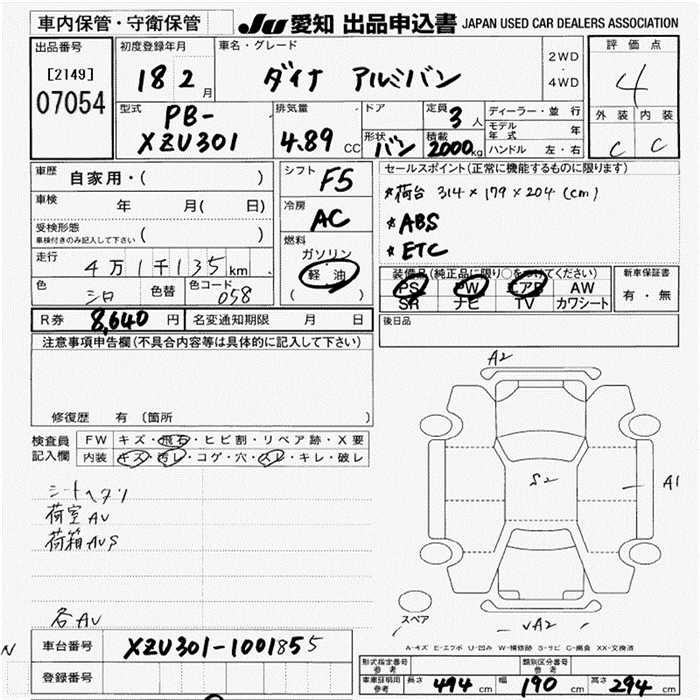 車内保管・守衛保管 JU 愛知 出品申込書 JAPAN USED CAR DEALERS ASSOCIATION
出品番号 初度登録年月 車名・グレード 評価点
[2149] 18 2月 ダイナ アルミバン 2WD・4WD 4
07054 外装 内装
型式 PB-XZU301 排気量 4.89 CC ドア 定員 3人 ディーラー・並行 C C
形状 バン 積載 2000kg モデル年式 年
ハンドル 左・右
車歴 自家用・( ) シフト F5 セールスポイント(正常に機能するものに限ります)
車検 年 月( 日) 冷房 AC *荷台 314×179×204(cm)
受検形態 ( ) *ABS
車検付きのみ記入して下さい 燃料 *ETC
走行 4万1千135km ガソリン 軽油 ( ) 装備品(純正品に限り○をつけてください) 新車保証書
色 シロ 色替 色コード 058 PS PW エアB AW 有・無
SR ナビ TV カワシート
R券 8,640円 名変通知期限 月 日 後日品
注意事項申告欄(不具合内容等は具体的に記入して下さい)
A2
修復歴 有〔箇所
検査員記入欄 FW キズ・飛石・ヒビ割・リペア跡・X要
内装 キズ・汚レ・コゲ・穴・スレ・キレ・破レ
S2 A1
シートヘタリ
荷室AU
荷箱AUS
各AU スペア
VA2
N 車台番号 XZU301-1001855 A-キズ E-エクボ U-凹み W-補修跡 S-サビ C-腐食 XX-交換済
登録番号 形式指定番号 参考 類別区分番号 参考
車庫証明用参考 長さ 494cm 幅 190cm 高さ 294cm